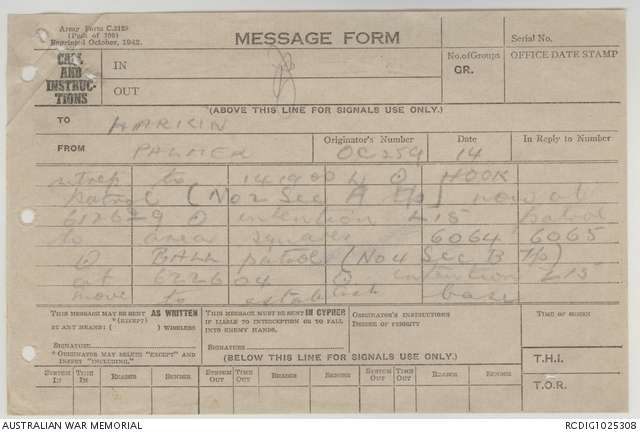 Army Form C.2128
(Pads of 100)
Reprinted October, 1942.
MESSAGE FORM
Serial No.
CALL AND INSTRUCTIONS
IN
OUT
No. of Groups
GR.
OFFICE DATE STAMP
(ABOVE THIS LINE FOR SIGNALS USE ONLY.)
TO HARKIN
FROM PALMER
Originator's Number OC254
Date 14
In Reply to Number
sitrep to 141900 HOOK
patrol (No 2 Sec A Tp) now at
612629 intention patrol
to area squares 6064 6065
BALL patrol (No 4 Sec B Tp)
at 622604 intention
move to establish base
THIS MESSAGE MAY BE SENT AS WRITTEN
*(EXCEPT)
BY ANY MEANS: ( ) WIRELESS
SIGNATURE
* ORIGINATOR MAY DELETE "EXCEPT" AND
INSERT "INCLUDING."
THIS MESSAGE MUST BE SENT IN CYPHER
IF LIABLE TO INTERCEPTION OR TO FALL
INTO ENEMY HANDS.
SIGNATURE
ORIGINATOR'S INSTRUCTIONS
DEGREE OF PRIORITY
TIME OF ORIGIN
(BELOW THIS LINE FOR SIGNALS USE ONLY.)
T.H.I.
SYSTEM IN TIME IN READER SENDER SYSTEM OUT TIME OUT READER SENDER SYSTEM OUT TIME OUT READER SENDER
T.O.R.
AUSTRALIAN WAR MEMORIAL
RCDIG1025308